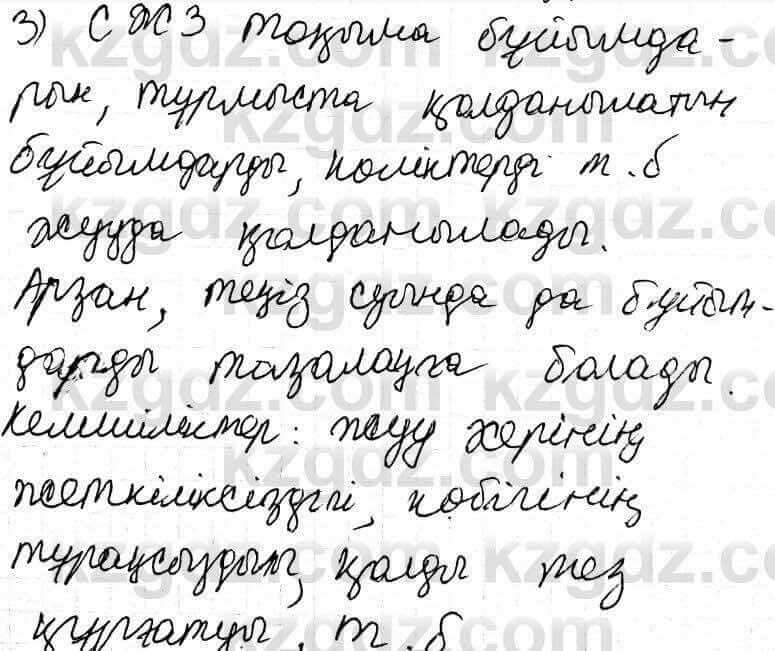 3) СЖЗ тоқыма бұйымда-
рын, тұрмыста қолданылатын
бұйымдарды, көліктерді т.б
жууда қолданылады.
Арзан, теңіз суында да бұйым-
дарды тазалауға болады.
Кемшіліктер: жуу әсерінің
жеткіліксіздігі, көбігінің
тұрақсыздығы, қолды тез
құрғатуы, т.б